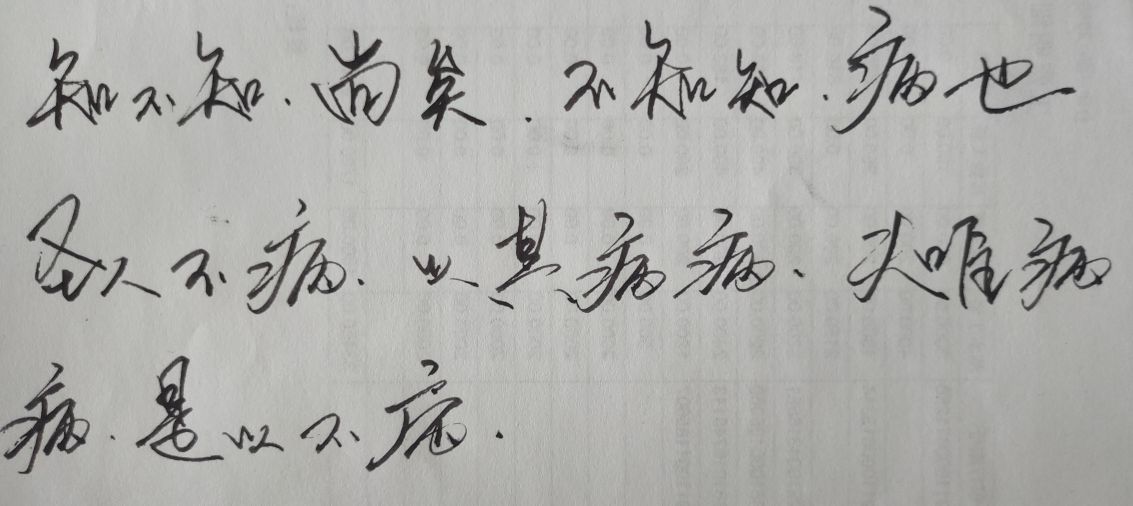 知不知.尚矣.不知知.病也
圣人不病.以其病病.夫唯病
病.是以不病.